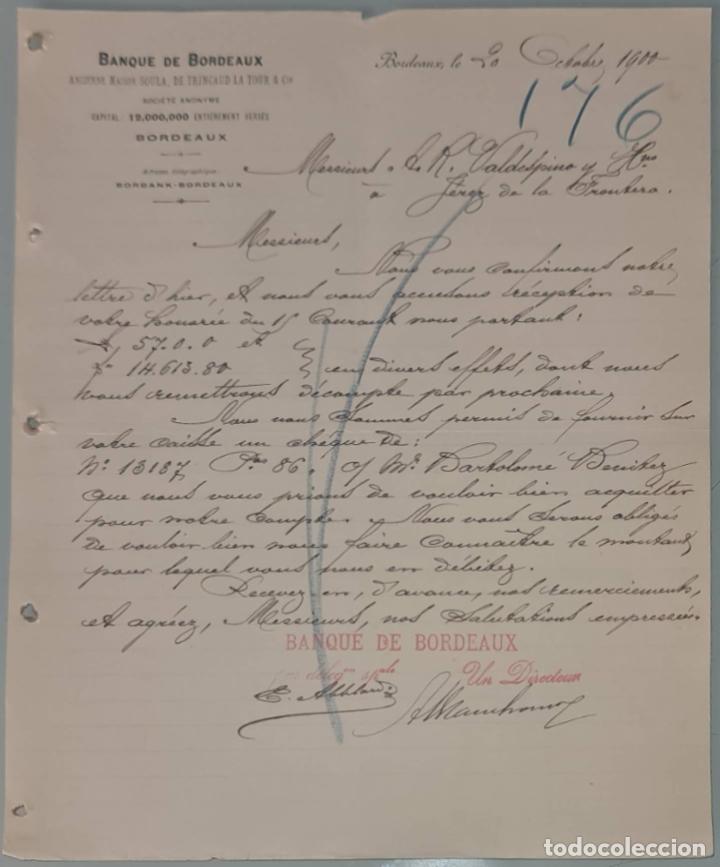 BANQUE DE BORDEAUX
ANCIENNE MAISON SOULA, DE TRINCAUD LA TOUR & Cie
SOCIÉTÉ ANONYME
CAPITAL: 12,000,000 ENTIÈREMENT VERSÉS
BORDEAUX
Adresse télégraphique:
BORBANK-BORDEAUX
Bordeaux, le 20 Octobre 1900
176
Messieurs A. R. Valdespino y Hno
à Jérez de la Frontera.
Messieurs,
Nous vous confirmons notre
lettre d'hier, et nous vous accusons réception de
votre honorée du 15 Courant nous portant:
57.0.0 et
14.613.80 en divers effets, dont nous
vous remettrons décompte par prochaine.
Nous nous sommes permis de fournir sur
votre caisse un chèque de:
No. 13187 Ptas 86. o/ Mr. Bartolomé Benitez
que nous vous prions de vouloir bien acquitter
pour notre compte. Nous vous serons obligés
de vouloir bien nous faire connaître le montant
pour lequel vous nous en débitez.
Recevez en, d'avance, nos remerciements,
et agréez, Messieurs, nos salutations empressées.
BANQUE DE BORDEAUX
Un Directeur
todocoleccion